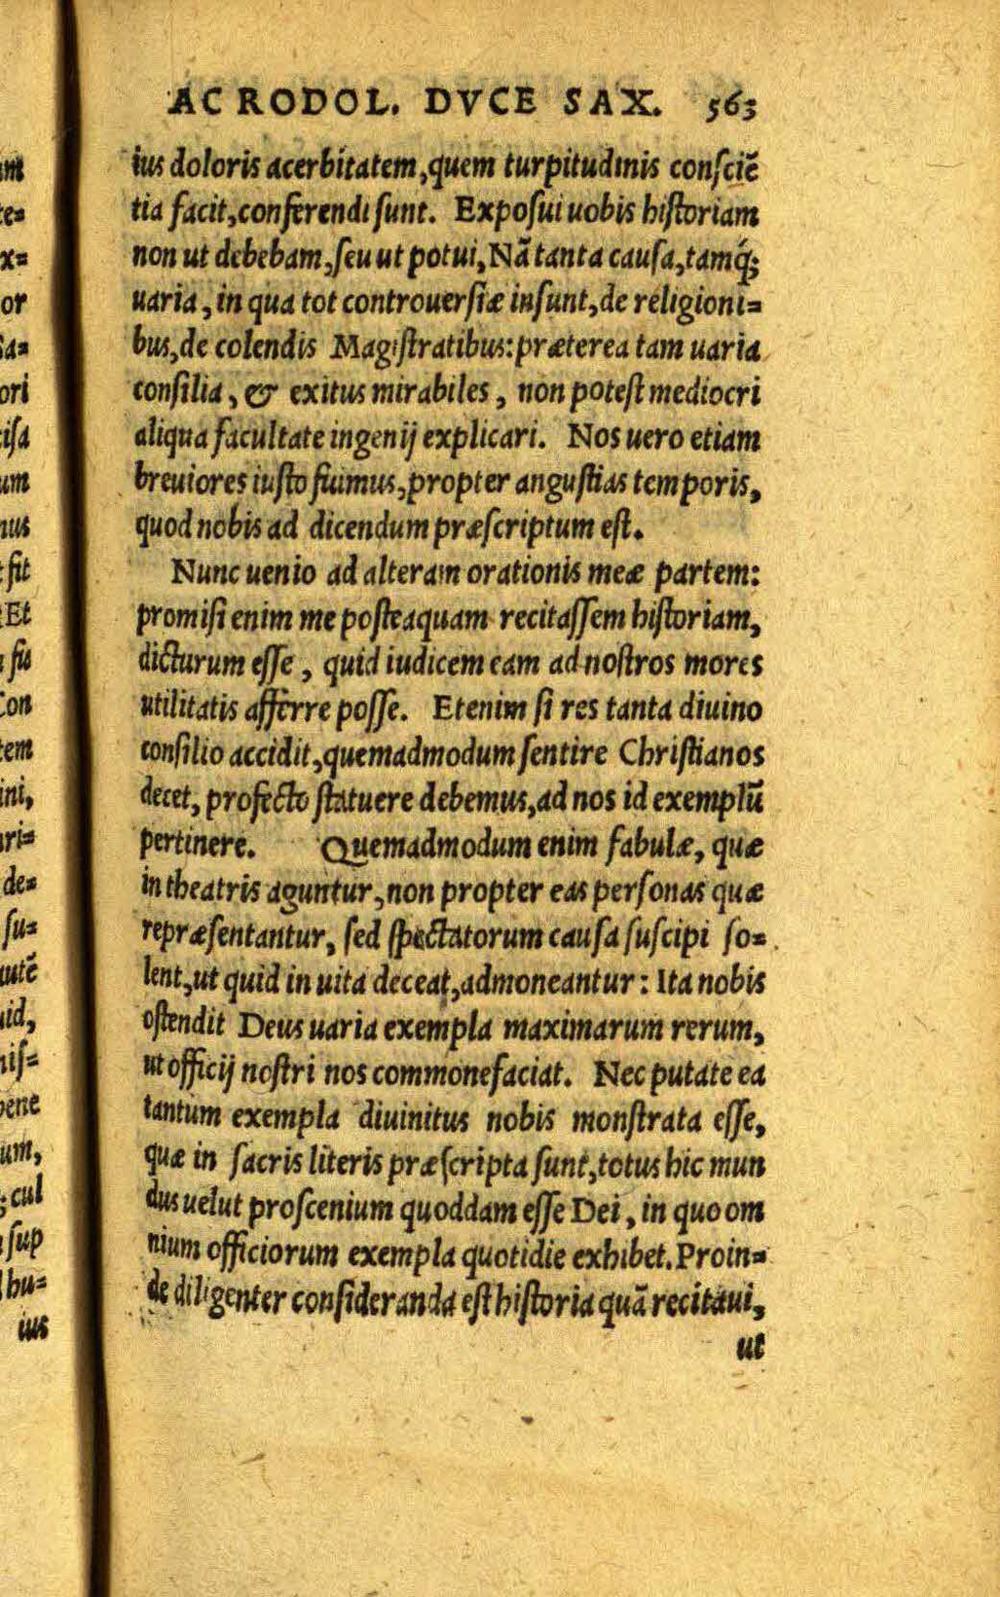 AC RODOL. DVCE SAX. 563
ius doloris acerbitatem, quem turpitudinis consciē
tia facit, conferendi sunt. Exposui uobis historiam
non ut debebam, seu ut potui, Nā tanta causa, tamq́;
uaria, in qua tot controuersiæ insunt, de religioni=
bus, de colendis Magistratibus: præterea tam uaria
consilia, & exitus mirabiles, non potest mediocri
aliqua facultate ingenij explicari. Nos uero etiam
breuiores iusto fuimus, propter angustias temporis,
quod nobis ad dicendum præscriptum est.
Nunc uenio ad alteram orationis meæ partem:
promisi enim me posteaquam recitassem historiam,
dicturum esse, quid iudicem eam ad nostros mores
utilitatis afferre posse. Etenim si res tanta diuino
consilio accidit, quemadmodum sentire Christianos
decet, profecto statuere debemus, ad nos id exemplū
pertinere. Quemadmodum enim fabulæ, quæ
in theatris aguntur, non propter eas personas quæ
repræsentantur, sed spectatorum causa suscipi so=
lent, ut quid in uita deceat, admoneantur: Ita nobis
ostendit Deus uaria exempla maximarum rerum,
ut officij nostri nos commonefaciat. Nec putate ea
tantum exempla diuinitus nobis monstrata esse,
quæ in sacris literis præscripta sunt, totus hic mun
dus uelut proscenium quoddam esse Dei, in quo om
nium officiorum exempla quotidie exhibet. Proin=
de diligenter consideranda est historia quā recitaui,
ut